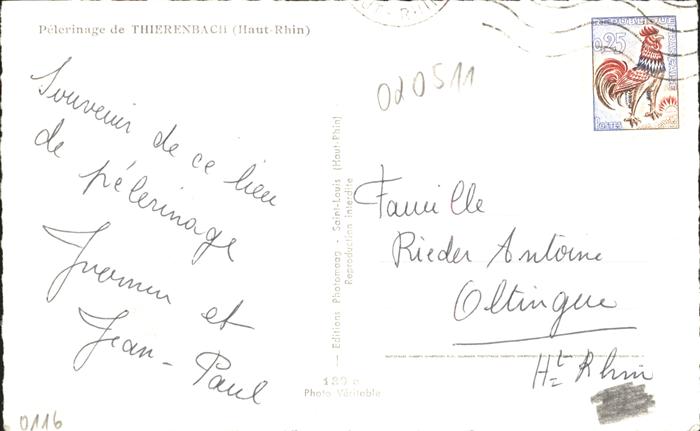 Pélerinage de THIERENBACH (Haut-Rhin)
Souvenir de ce lieu
de pélerinage
et
Jean-Paul
0116
020511
Editions Photomoag - Saint-Louis (Haut-Rhin)
Reproduction Interdite
Photo Véritable
0,25
POSTES
Famille
Rieder Antoine
Oltingue
Ht Rhin